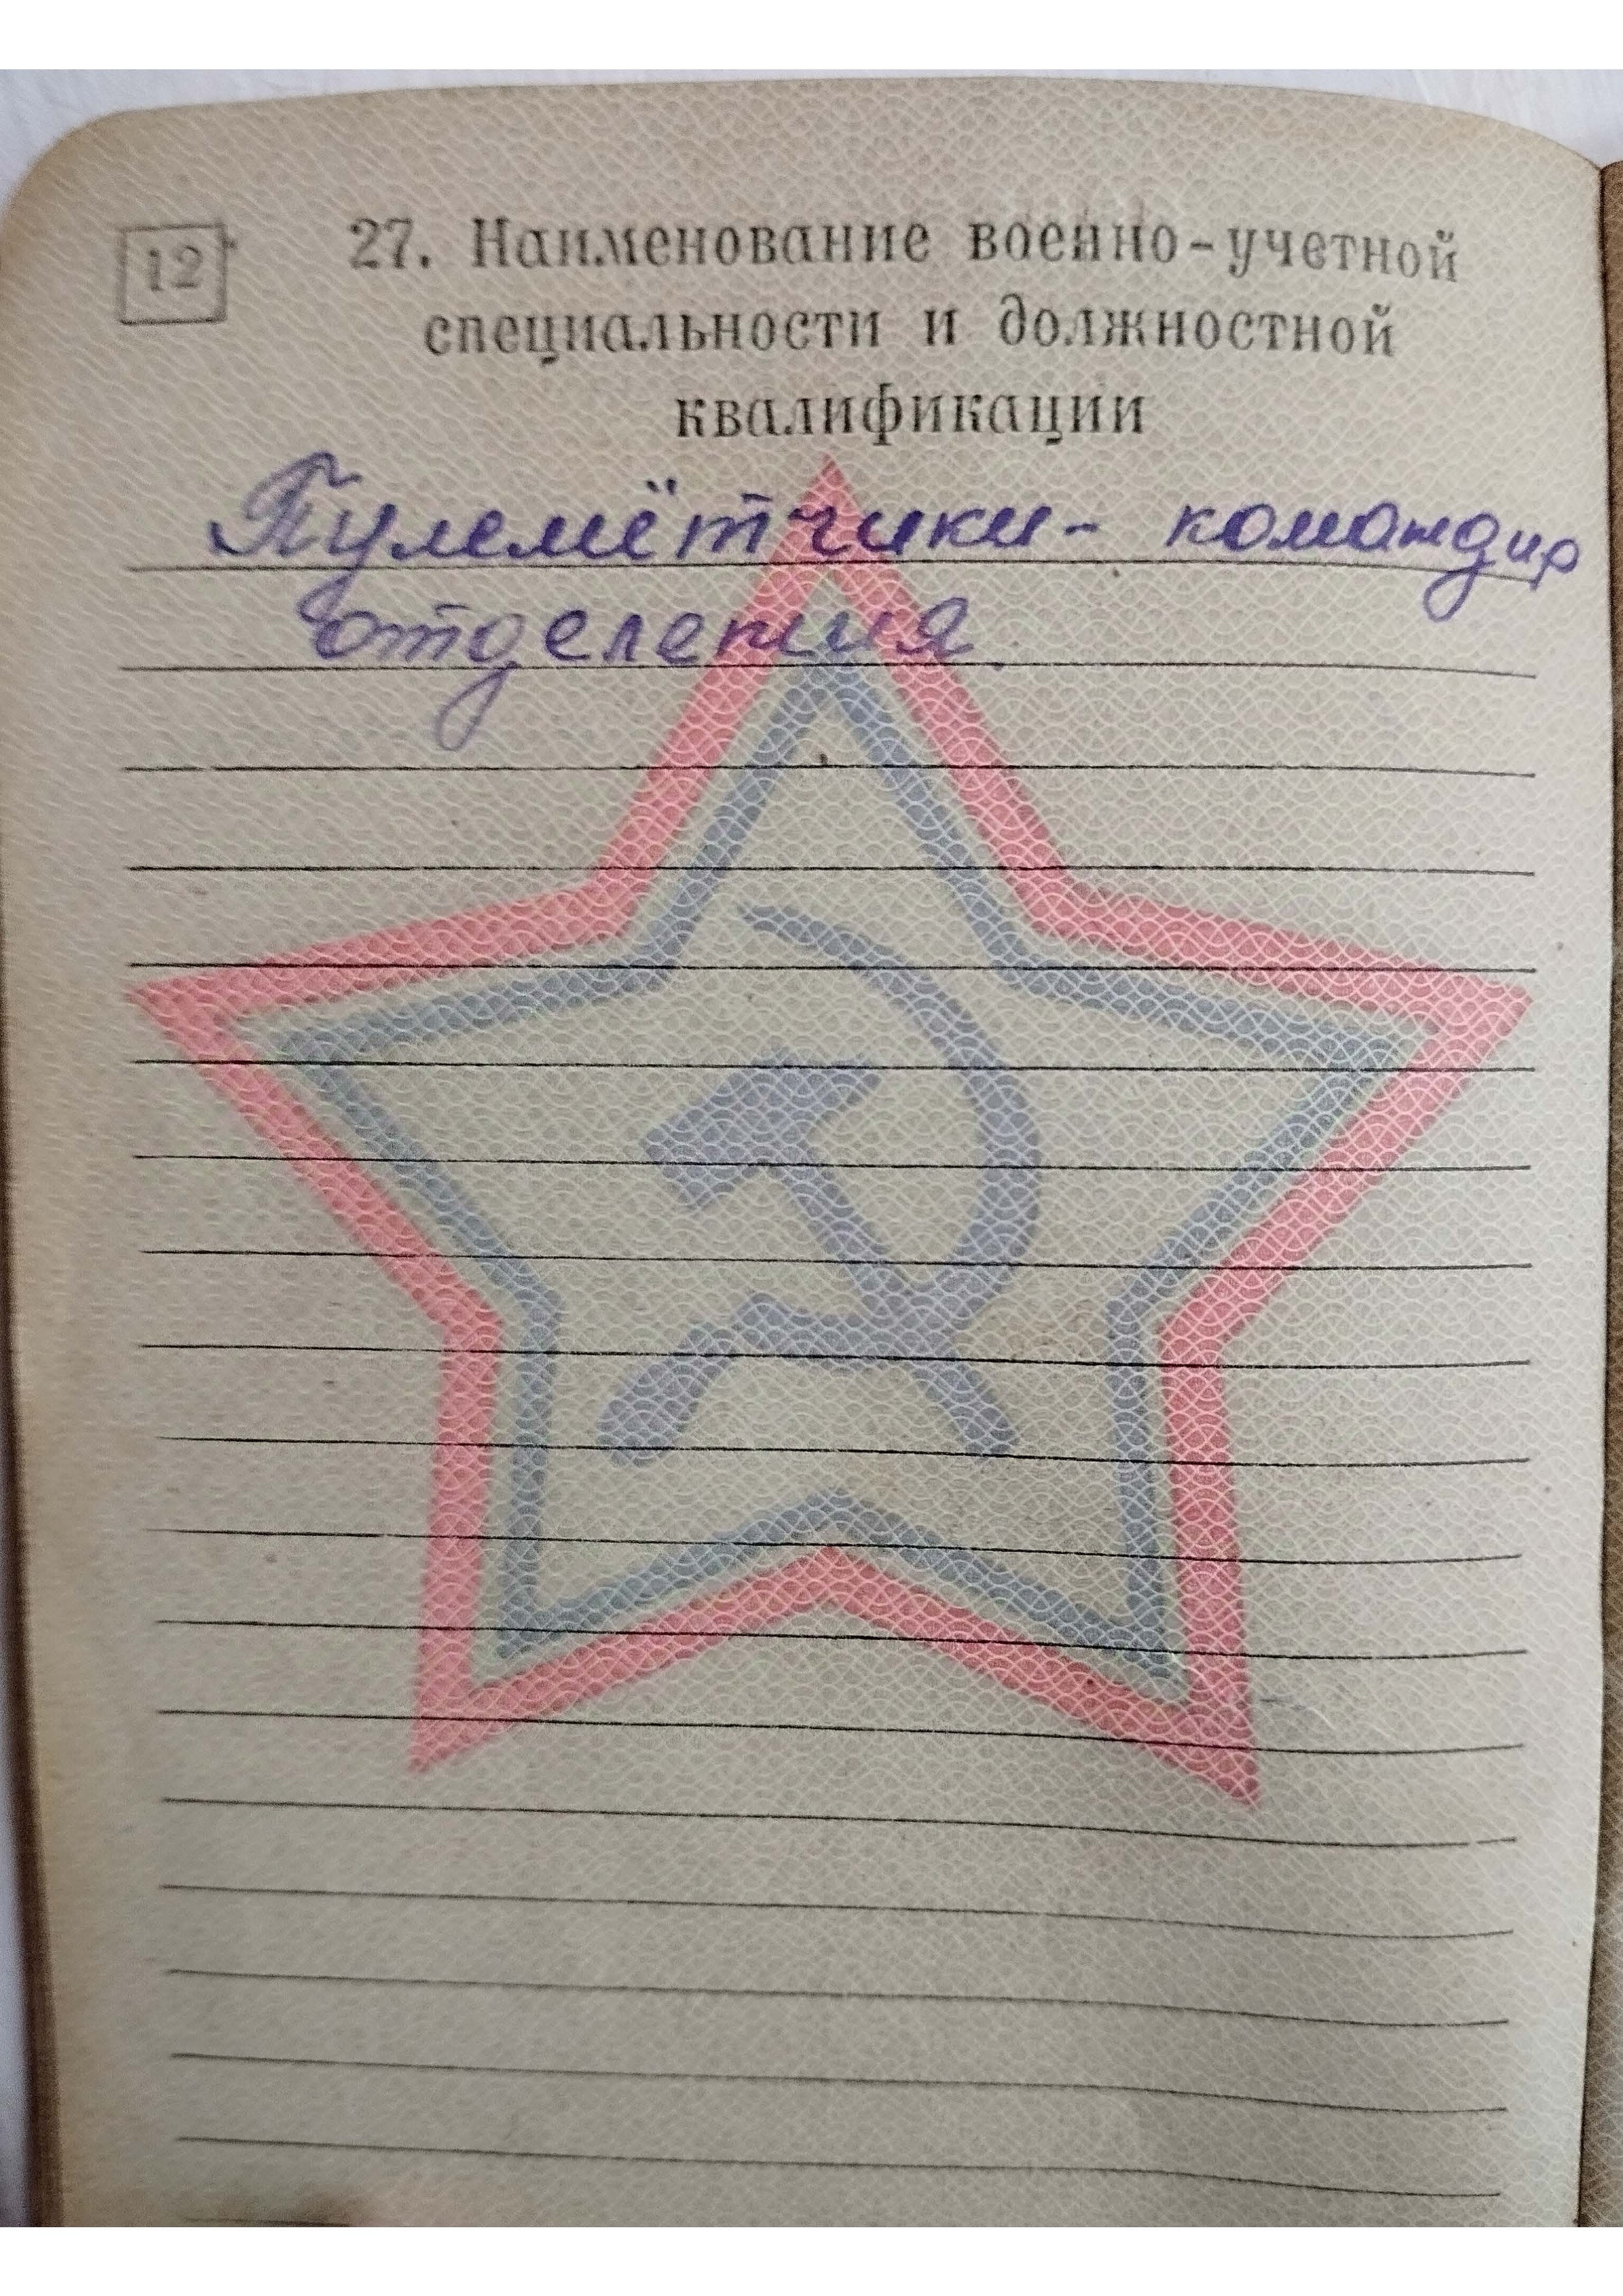 12
27. Наименование военно-учетной
специальности и должностной
квалификации
Пулемётчики- командир
отделения.